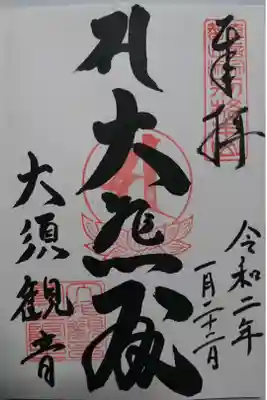 奉拝
令和二年
一月二十二日
大悲殿
大須観音